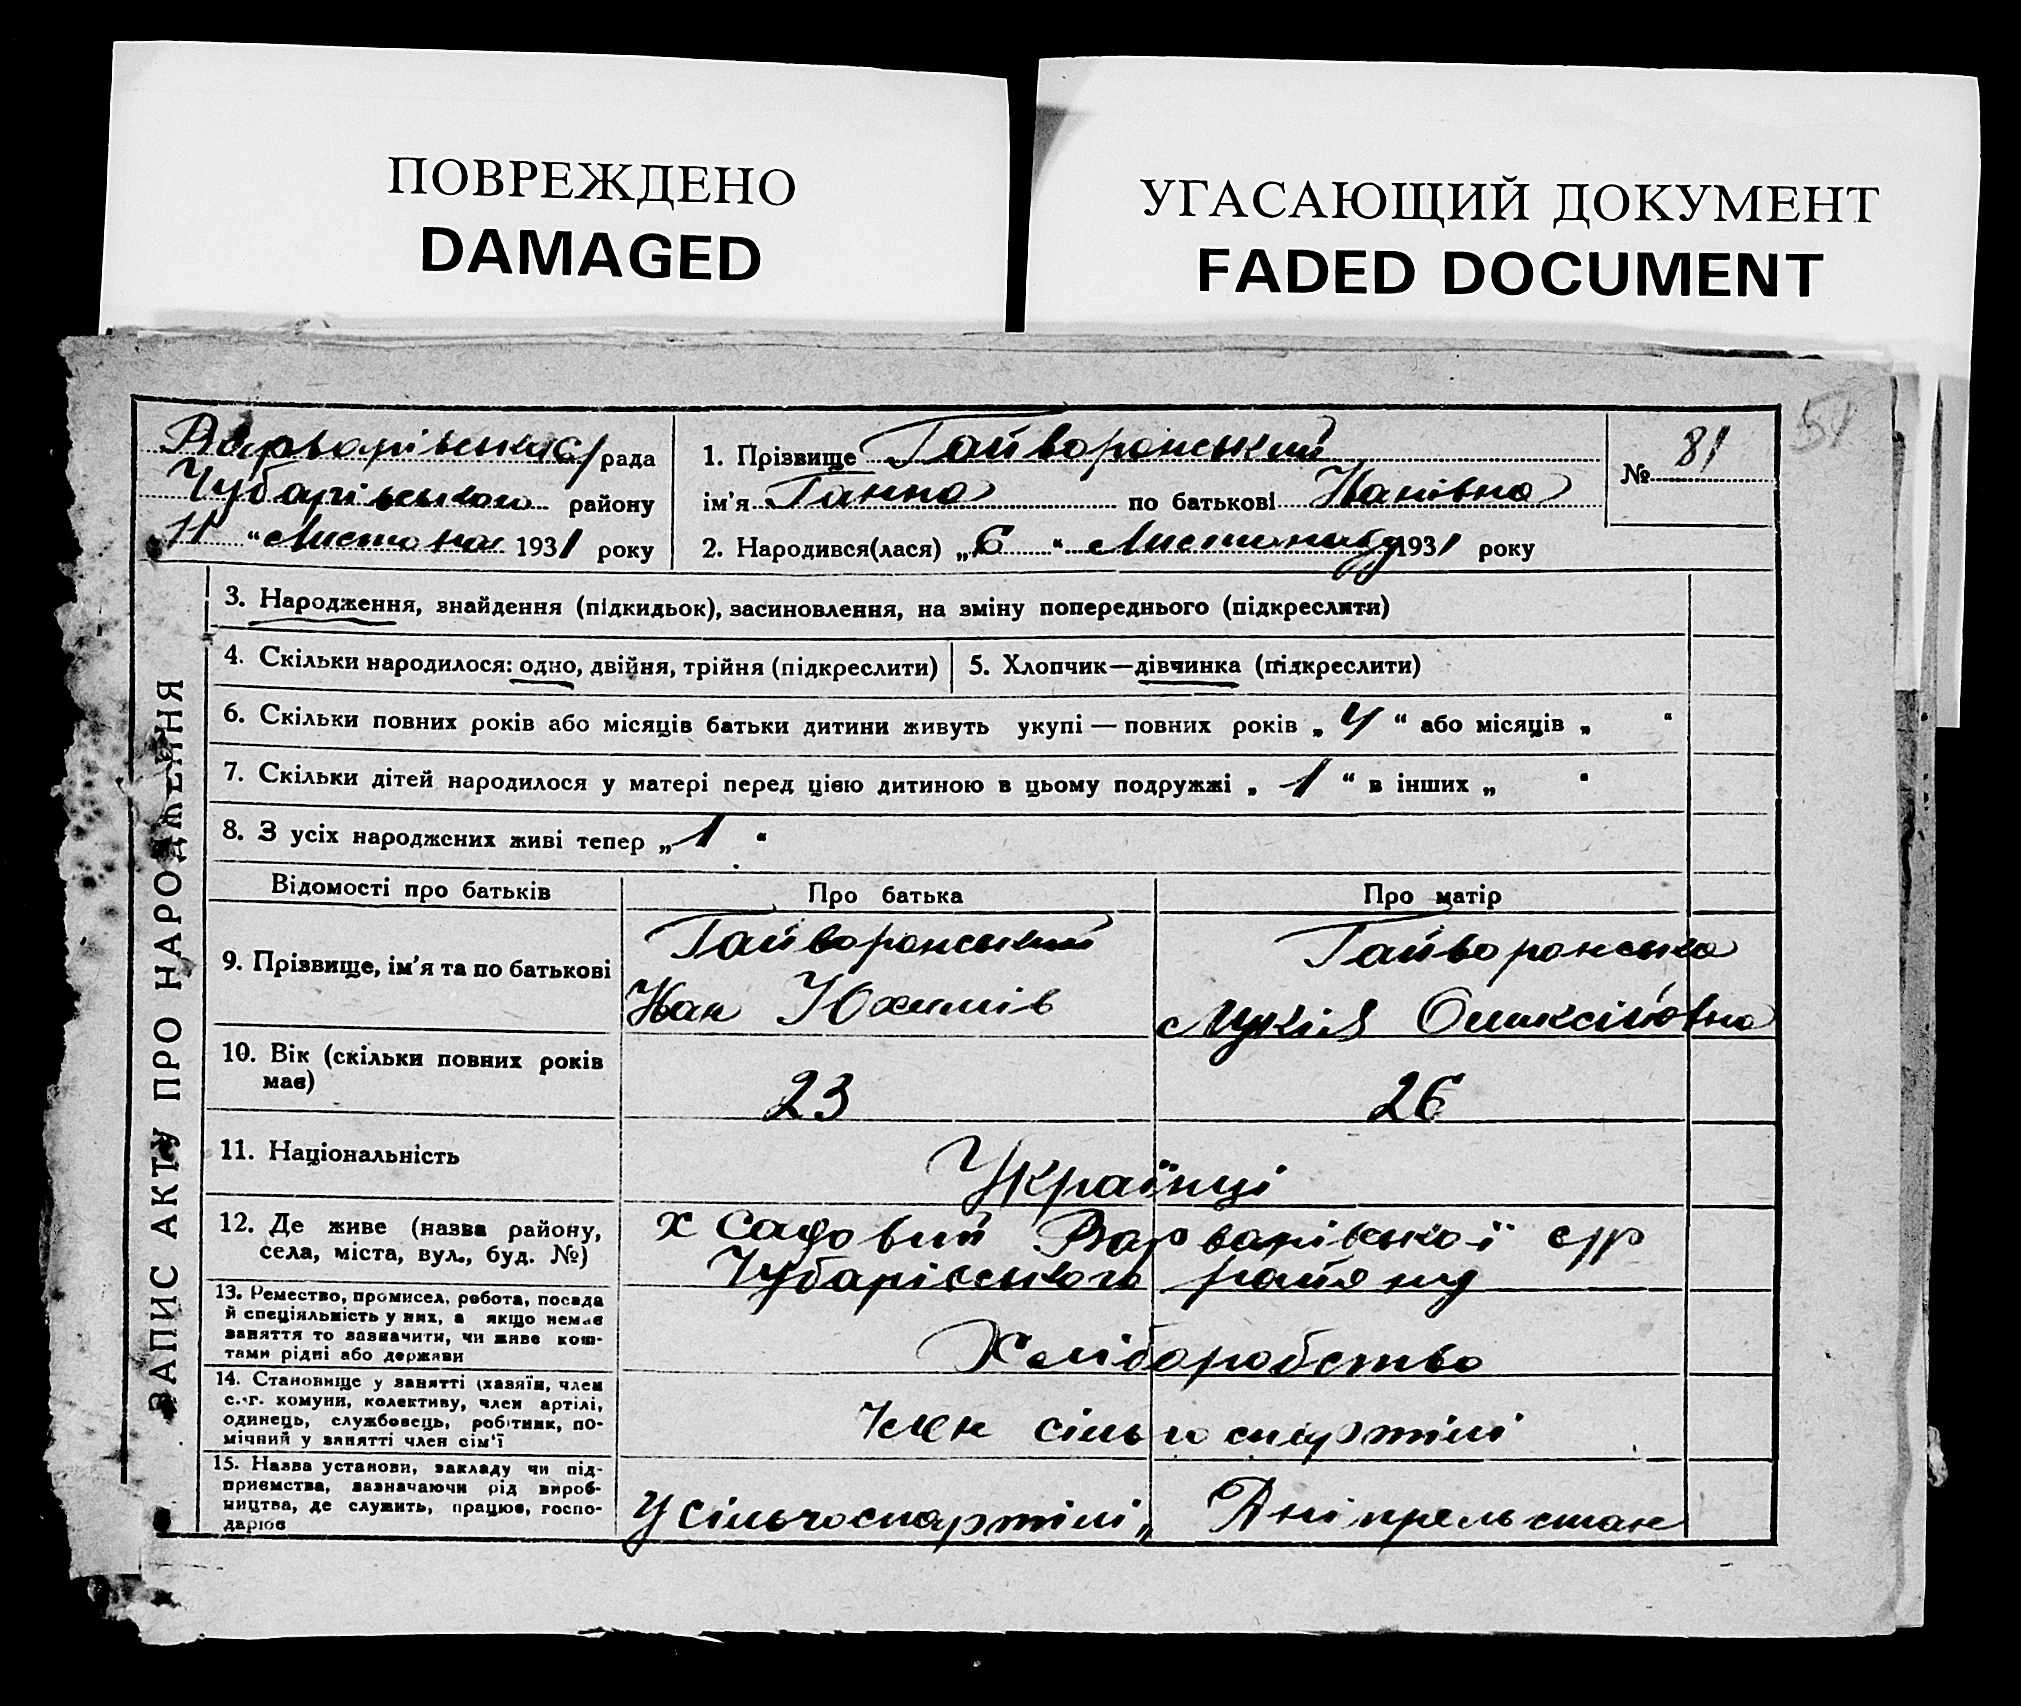 ПОВРЕЖДЕНО
DAMAGED
УГАСАЮЩИЙ ДОКУМЕНТ
FADED DOCUMENT
51
Варварівська с/рада
Чубарівського району
11 " Листопа 1931 року
1. Прізвище Гайворонський
ім'я Ганна по батькові Іванівна
2. Народився(лася) „6" Листопаду 1931 року
№ 81
ЗАПИС АКТУ ПРО НАРОДЖЕННЯ
3. Народження, знайдення (підкидьок), засиновлення, на зміну попереднього (підкреслити)
4. Скільки народилося: одно, двійня, трійня (підкреслити)
5. Хлопчик—дівчинка (підкреслити)
6. Скільки повних років або місяців батьки дитини живуть укупі — повних років „ 4 " або місяців „ "
7. Скільки дітей народилося у матері перед цією дитиною в цьому подружжі „ 1 " в інших „ "
8. З усіх народжених живі тепер „ 1 "
Відомості про батьків
Про батька
Про матір
9. Прізвище, ім'я та по батькові
Гайворонський
Іван Юхимів
Гайворонська
Лукія Олексіївна
10. Вік (скільки повних років
має)
23
26
11. Національність
Українці
12. Де живе (назва району,
села, міста, вул., буд. №)
х Садовий Варварівської с/р
Чубарівського району
13. Ремество, промисел, робота, посада
й спеціяльність у них, а якщо немає
заняття то зазначити, чи живе кош-
тами рідні або держави
Хліборобство
14. Становище у занятті (хазяїн, член
с.-г. комуни, колективу, член артілі,
одинець, службовець, робітник, по-
мічний у занятті член сім'ї
Член сільгоспартілі
15. Назва установи, закладу чи під-
приємства, зазначаючи рід вироб-
ництва, де служить, працює, госпо-
дарює
У сільгоспартілі „ Дніпрельстан